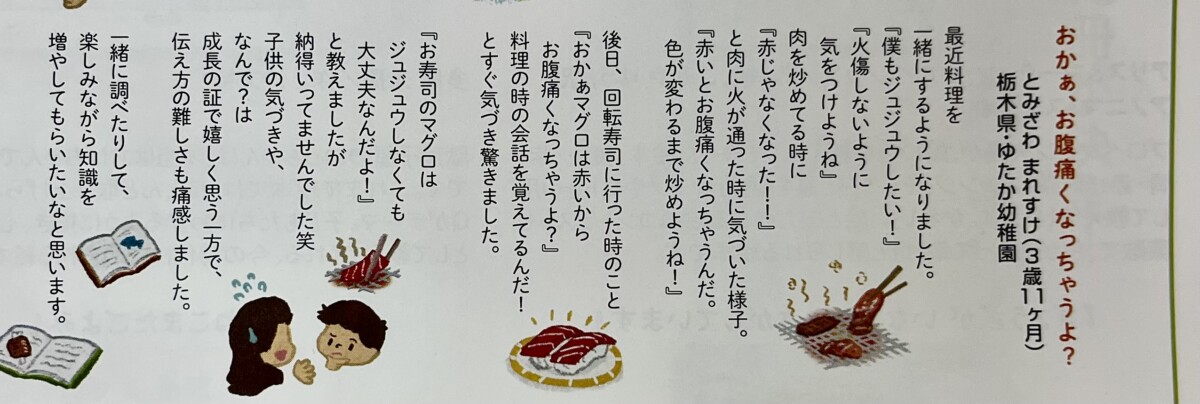 おかぁ、お腹痛くなっちゃうよ？
とみざわ まれすけ（3歳11ヶ月）
栃木県・ゆたか幼稚園
最近料理を
一緒にするようになりました。
『僕もジュジュウしたい！』
『火傷しないように
気をつけようね』
肉を炒めてる時に
『赤じゃなくなった！！』
と肉に火が通った時に気づいた様子。
『赤いとお腹痛くなっちゃうんだ。
色が変わるまで炒めようね！』
後日、回転寿司に行った時のこと
『おかぁマグロは赤いから
お腹痛くなっちゃうよ？』
料理の時の会話を覚えてるんだ！
とすぐ気づき驚きました。
『お寿司のマグロは
ジュジュウしなくても
大丈夫なんだよ！』
と教えましたが
納得いってませんでした笑
子供の気づきや、
なんで？は
成長の証で嬉しく思う一方で、
伝え方の難しさも痛感しました。
一緒に調べたりして
楽しみながら知識を
増やしてもらいたいなと思います。